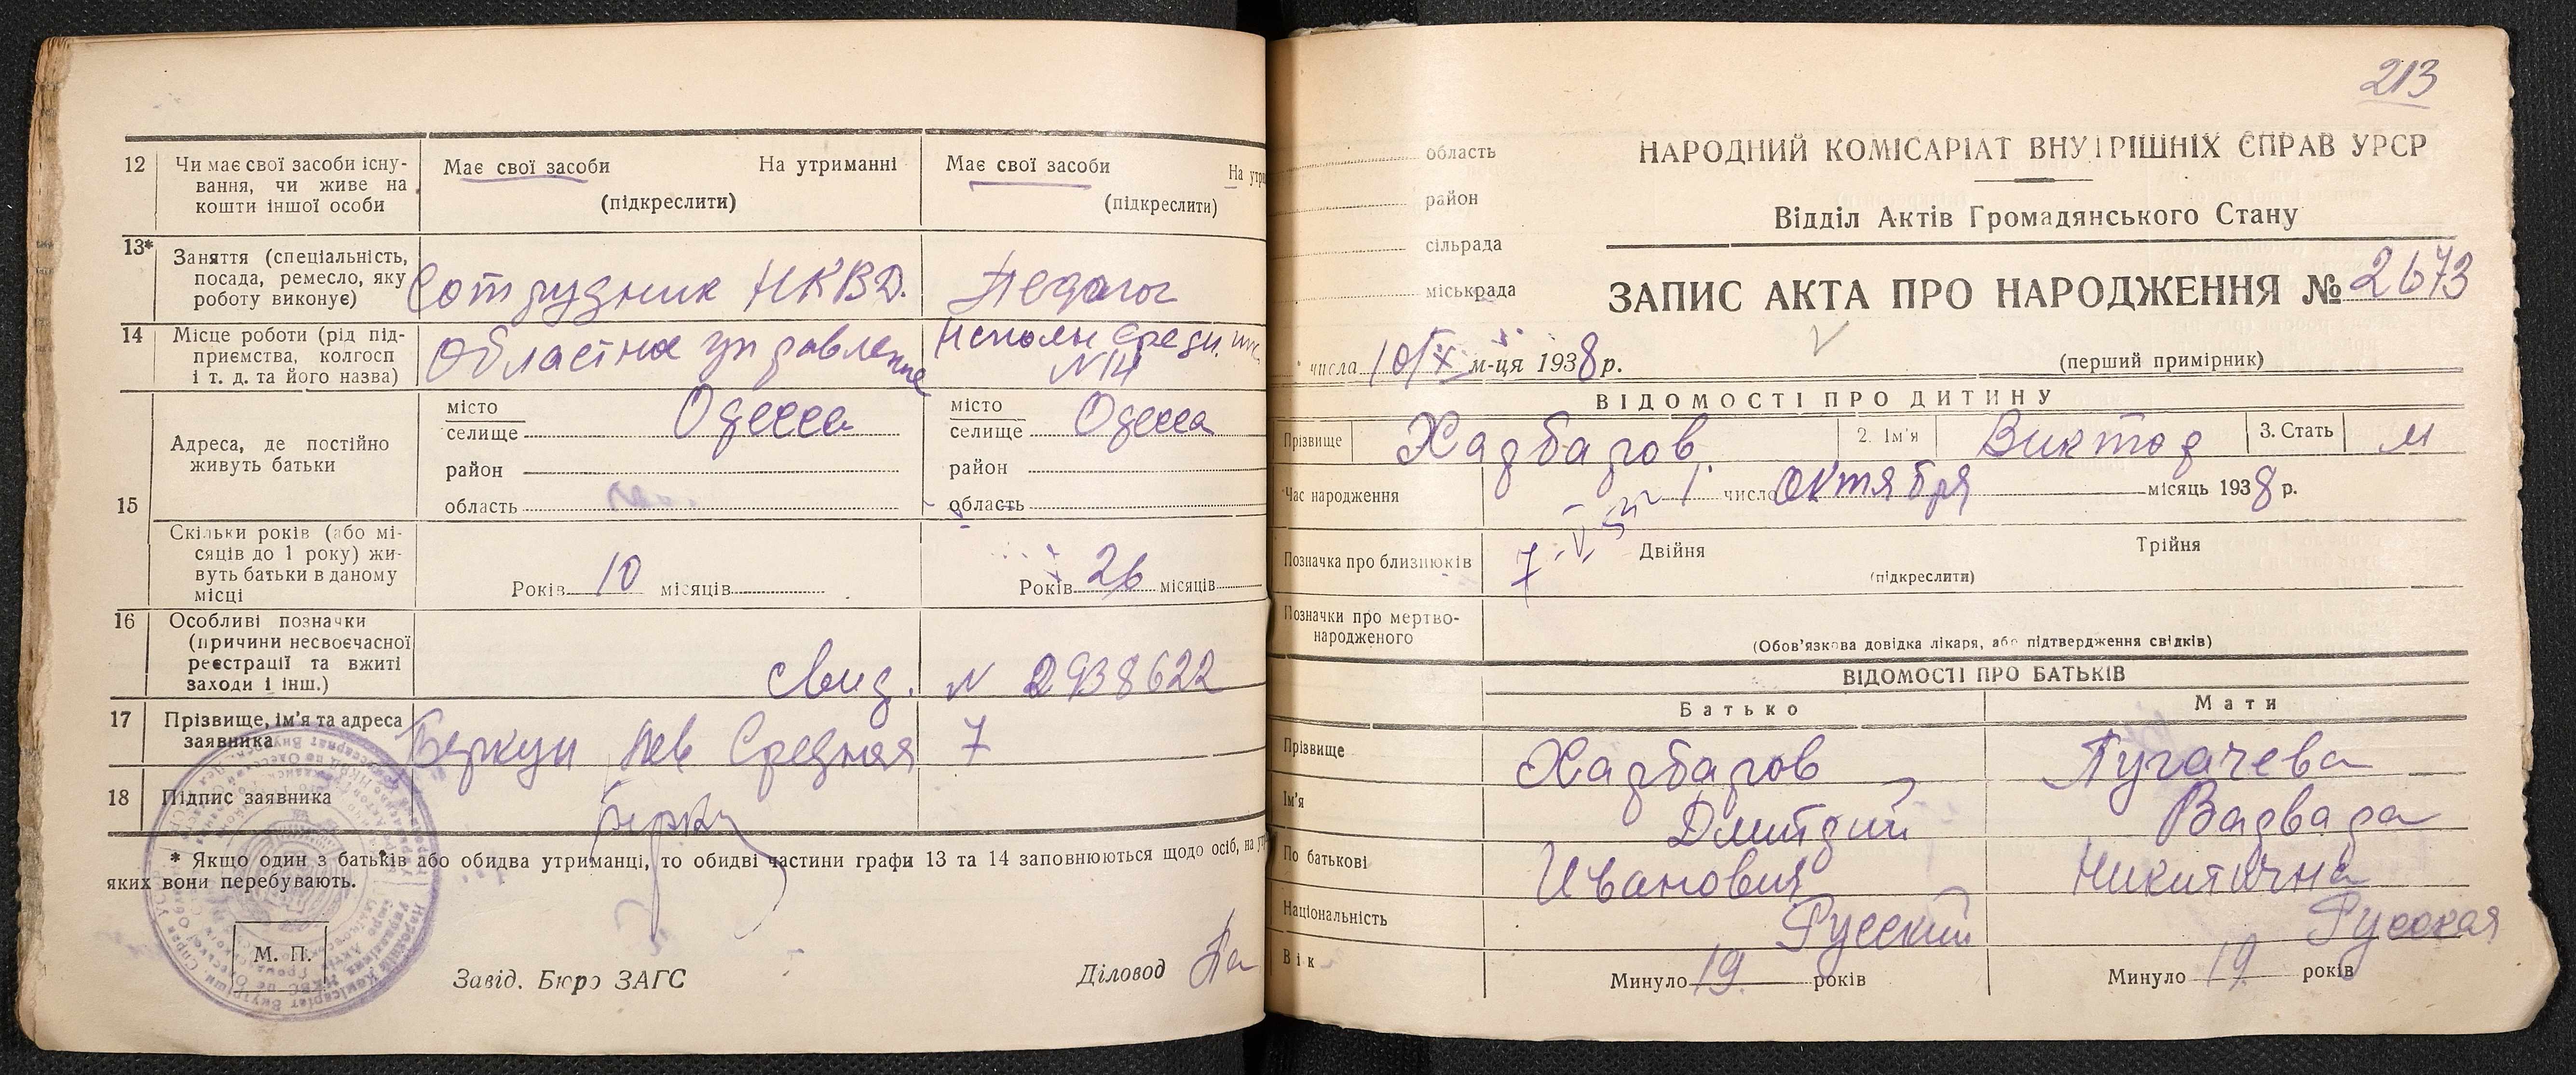 12 Чи має свої засоби існу-
вання, чи живе на
кошти іншої особи
Має свої засоби На утриманні
(підкреслити)
Має свої засоби На утри
(підкреслити)
13* Заняття (спеціальність,
посада, ремесло, яку
роботу виконує)
Сотрудник НКВД.
Педагог
14 Місце роботи (рід під-
приємства, колгосп
і т. д. та його назва)
Областное управление
средн. шк.
№14
15
Адреса, де постійно
живуть батьки
місто
селище Одесса
район
область
місто
селище Одесса
район
область
Скільки років (або мі-
сяців до 1 року) жи-
вуть батьки в даному
місці
Років 10 місяців
Років 26 місяців
16 Особливі позначки
(причини несвоєчасної
реєстрації та вжиті
заходи і інш.)
Свид. N 2938622
17 Прізвище, ім'я та адреса
заявника
Беркун Лев Средняя 7
18 Підпис заявника
* Якщо один з батьків або обидва утриманці, то обидві частини графи 13 та 14 заповнюються щодо осіб, на
яких вони перебувають.
М. П.
Завід. Бюро ЗАГС
Діловод
213
область
район
сільрада
міськрада
НАРОДНИЙ КОМІСАРІАТ ВНУТРІШНІХ СПРАВ УРСР
Відділ Актів Громадянського Стану
ЗАПИС АКТА ПРО НАРОДЖЕННЯ № 2673
числа 10/X м-ця 1938 р.
(перший примірник)
ВІДОМОСТІ ПРО ДИТИНУ
Прізвище Харбаров 2. Ім'я Виктор 3. Стать м
Час народження 1 число Октября місяць 1938 р.
Позначка про близнюків Двійня Трійня
(підкреслити)
Позначки про мертво-
народженого
(Обов'язкова довідка лікаря, або підтвердження свідків)
ВІДОМОСТІ ПРО БАТЬКІВ
Батько Мати
Прізвище Харбаров Пугачева
Ім'я Дмитрий Варвара
По батькові Иванович Никитична
Національність Русский Русская
Вік Минуло 19 років Минуло 19 років